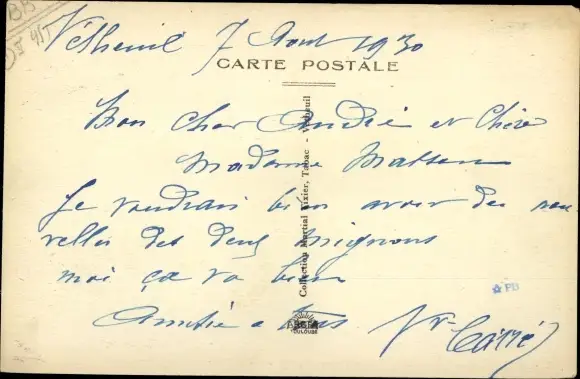 BB
Vétheuil 7 Aout 1930
CARTE POSTALE
Bon cher André et Chère
Madame Masson
Je voudrais bien avoir des nou
velles des deux mignons
moi ça va bien
Amitié a tous
Collection Martial Vixier, Tabac - Vétheuil
TOULOUSE
☆ FD